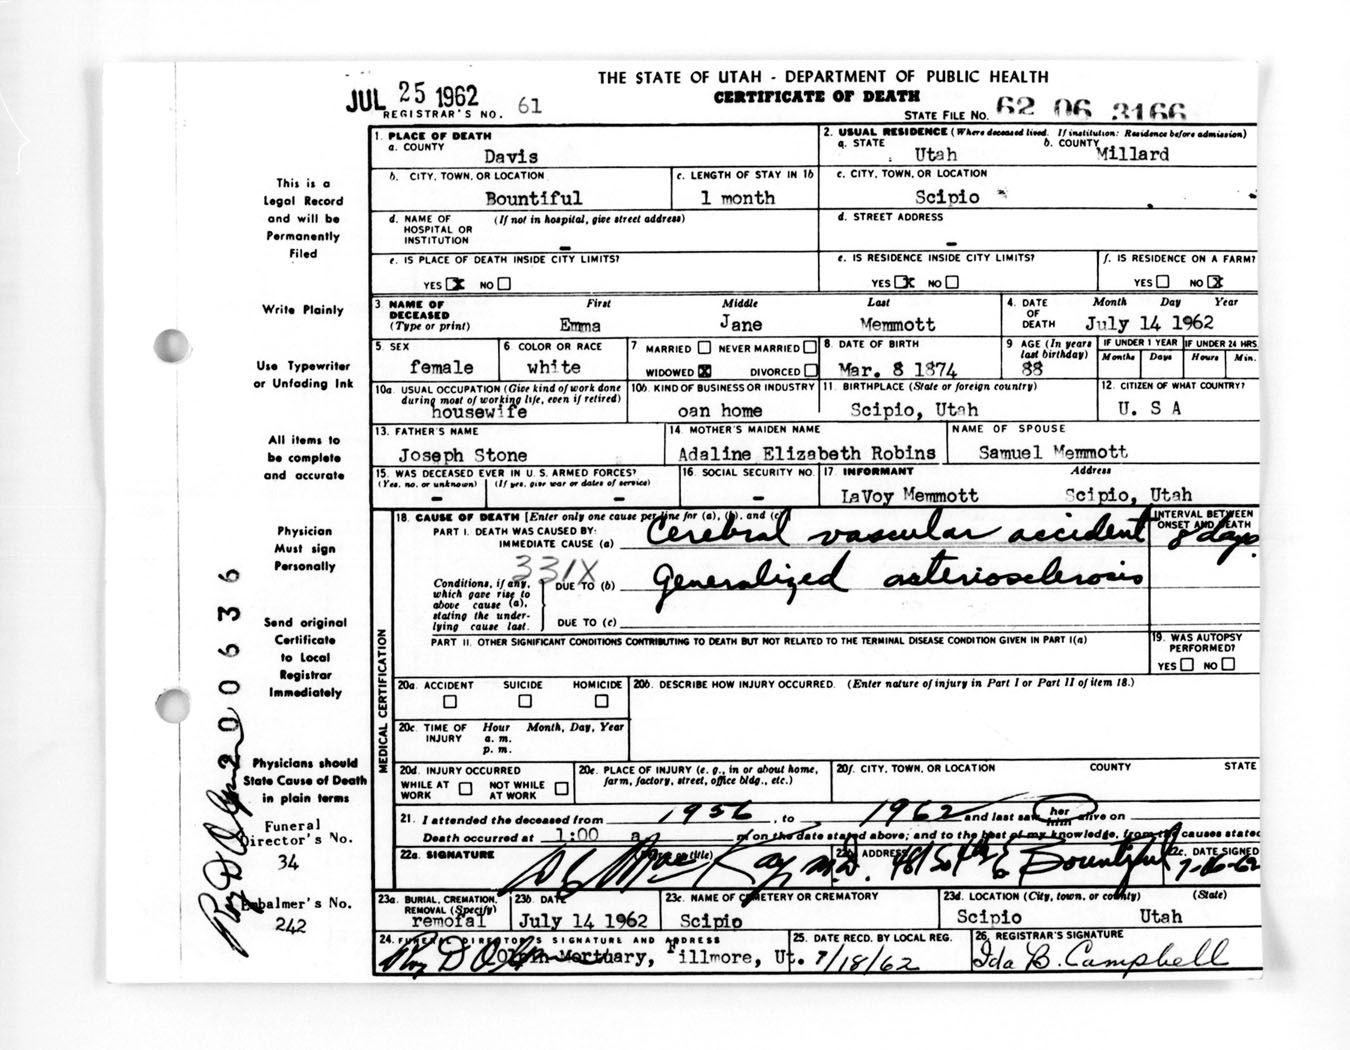 THE STATE OF UTAH - DEPARTMENT OF PUBLIC HEALTH
CERTIFICATE OF DEATH
JUL 25 1962
REGISTRAR'S NO. 61
STATE FILE NO. 62 06 3166
1. PLACE OF DEATH
a. COUNTY
Davis
2. USUAL RESIDENCE (Where deceased lived. If institution: Residence before admission)
a. STATE
Utah
b. COUNTY
Millard
b. CITY, TOWN, OR LOCATION
Bountiful
c. LENGTH OF STAY IN 1b
1 month
c. CITY, TOWN, OR LOCATION
Scipio
d. NAME OF HOSPITAL OR INSTITUTION (If not in hospital, give street address)
-
d. STREET ADDRESS
-
e. IS PLACE OF DEATH INSIDE CITY LIMITS?
YES X NO
e. IS RESIDENCE INSIDE CITY LIMITS?
YES X NO
f. IS RESIDENCE ON A FARM?
YES NO X
3. NAME OF DECEASED (Type or print)
First Middle Last
Emma Jane Memmott
4. DATE OF DEATH
Month Day Year
July 14 1962
5. SEX
female
6. COLOR OR RACE
white
7 MARRIED NEVER MARRIED
WIDOWED X DIVORCED
8. DATE OF BIRTH
Mar. 8 1874
9 AGE (In years last birthday)
88
IF UNDER 1 YEAR
Months Days
IF UNDER 24 HRS
Hours Min.
10a. USUAL OCCUPATION (Give kind of work done during most of working life, even if retired)
housewife
10b. KIND OF BUSINESS OR INDUSTRY
oan home
11. BIRTHPLACE (State or foreign country)
Scipio, Utah
12. CITIZEN OF WHAT COUNTRY?
U. S A
13. FATHER'S NAME
Joseph Stone
14. MOTHER'S MAIDEN NAME
Adaline Elizabeth Robins
NAME OF SPOUSE
Samuel Memmott
15. WAS DECEASED EVER IN U. S. ARMED FORCES?
(Yes, no, or unknown) (If yes, give war or dates of service)
- -
16. SOCIAL SECURITY NO.
-
17. INFORMANT Address
LaVoy Memmott Scipio, Utah
MEDICAL CERTIFICATION
18. CAUSE OF DEATH [Enter only one cause per line for (a), (b), and (c)
INTERVAL BETWEEN ONSET AND DEATH
PART I. DEATH WAS CAUSED BY:
IMMEDIATE CAUSE (a) Cerebral vascular accident 8 days
331X
Conditions, if any, which gave rise to above cause (a), stating the underlying cause last.
DUE TO (b) Generalized arteriosclerosis
DUE TO (c)
PART II. OTHER SIGNIFICANT CONDITIONS CONTRIBUTING TO DEATH BUT NOT RELATED TO THE TERMINAL DISEASE CONDITION GIVEN IN PART I(a)
19. WAS AUTOPSY PERFORMED?
YES NO
20a. ACCIDENT SUICIDE HOMICIDE
20b. DESCRIBE HOW INJURY OCCURRED. (Enter nature of injury in Part I or Part II of item 18.)
20c. TIME OF INJURY Hour Month, Day, Year
a. m.
p. m.
20d. INJURY OCCURRED
WHILE AT WORK NOT WHILE AT WORK
20e. PLACE OF INJURY (e. g., in or about home, farm, factory, street, office bldg., etc.)
20f. CITY, TOWN, OR LOCATION COUNTY STATE
21. I attended the deceased from 1956, to 1962 and last saw her him alive on
Death occurred at 1:00 a m on the date stated above; and to the best of my knowledge, from the causes stated
22a. SIGNATURE (Degree or title)
Kay M.D.
22b. ADDRESS
Bountiful
22c. DATE SIGNED
7-16-62
23a. BURIAL, CREMATION, REMOVAL (Specify)
remofal
23b. DATE
July 14 1962
23c. NAME OF CEMETERY OR CREMATORY
Scipio
23d. LOCATION (City, town, or county) (State)
Scipio Utah
24. FUNERAL DIRECTOR'S SIGNATURE AND ADDRESS
Olpin Mortuary, Fillmore, Ut.
25. DATE RECD. BY LOCAL REG.
7/18/62
26. REGISTRAR'S SIGNATURE
Ida B. Campbell
This is a
Legal Record
and will be
Permanently
Filed
Write Plainly
Use Typewriter
or Unfading Ink
All items to
be complete
and accurate
Physician
Must sign
Personally
Send original
Certificate
to Local
Registrar
Immediately
Physicians should
State Cause of Death
in plain terms
Funeral
Director's No.
34
Embalmer's No.
242
Roy D Olpin
200636